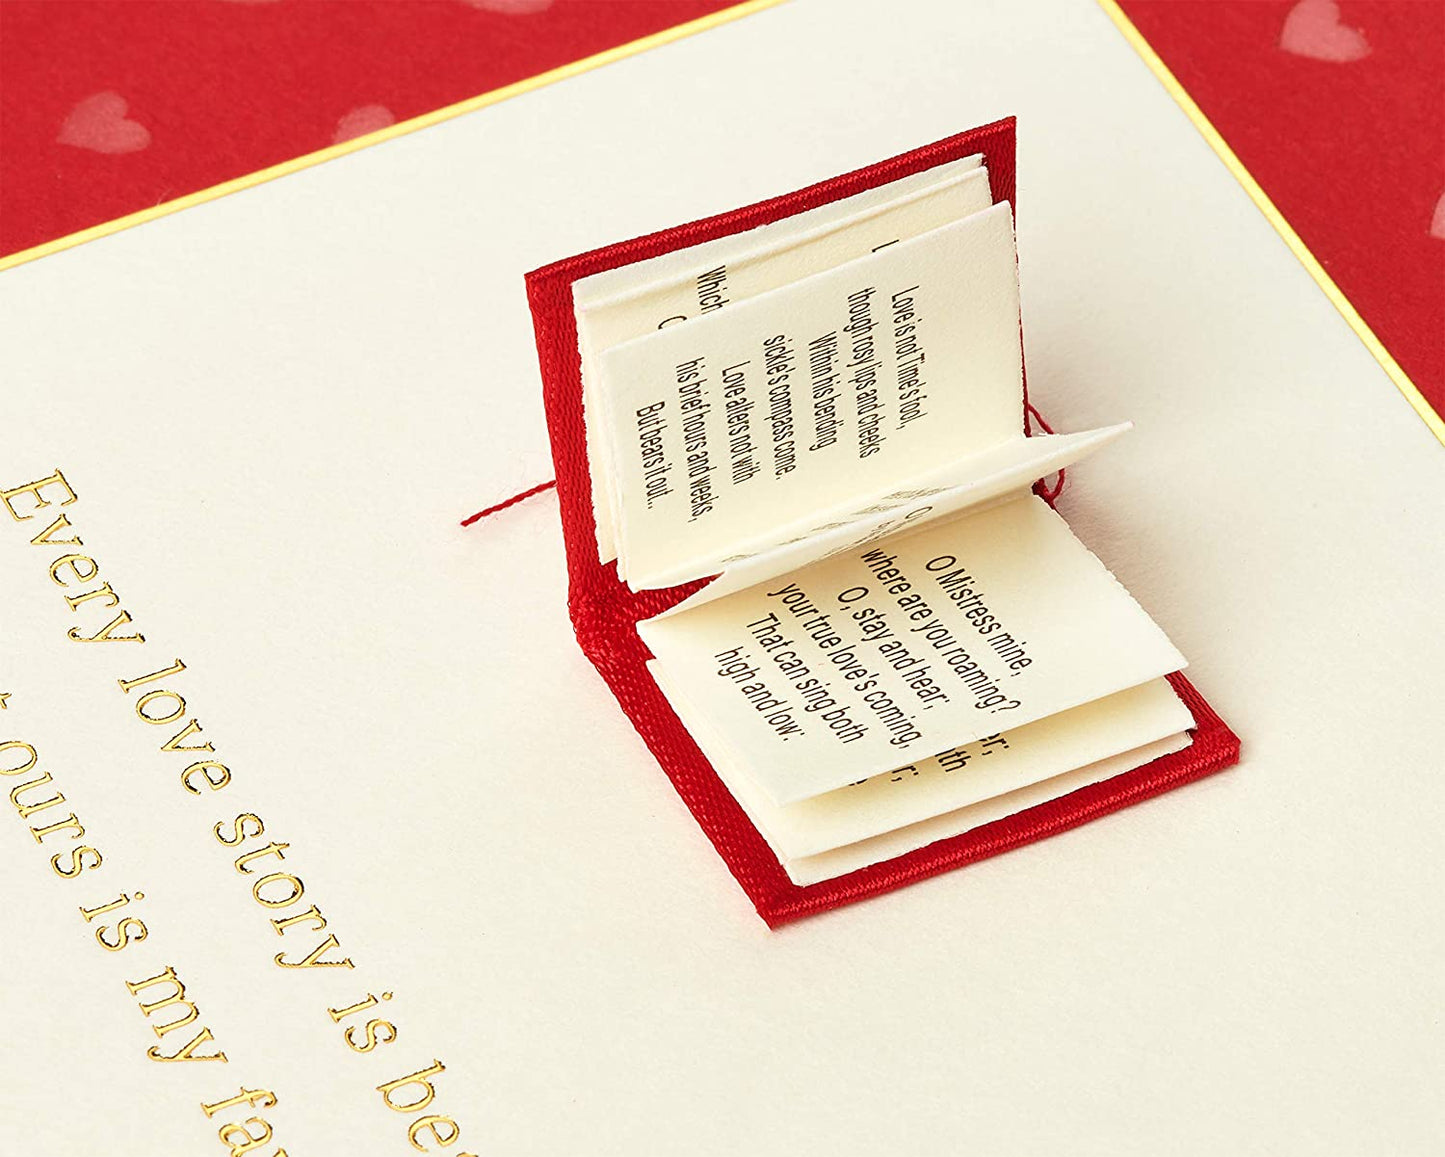 Every love story is be
t ours is my fav
Which
C
Love is not Time's fool,
though rosy lips and cheeks
Within his bending
sickle's compass come.
Love alters not with
his brief hours and weeks,
But bears it out..
O Mistress mine,
where are you roaming?
O, stay and hear;
your true love's coming,
That can sing both
high and low:
er;
ith
r;